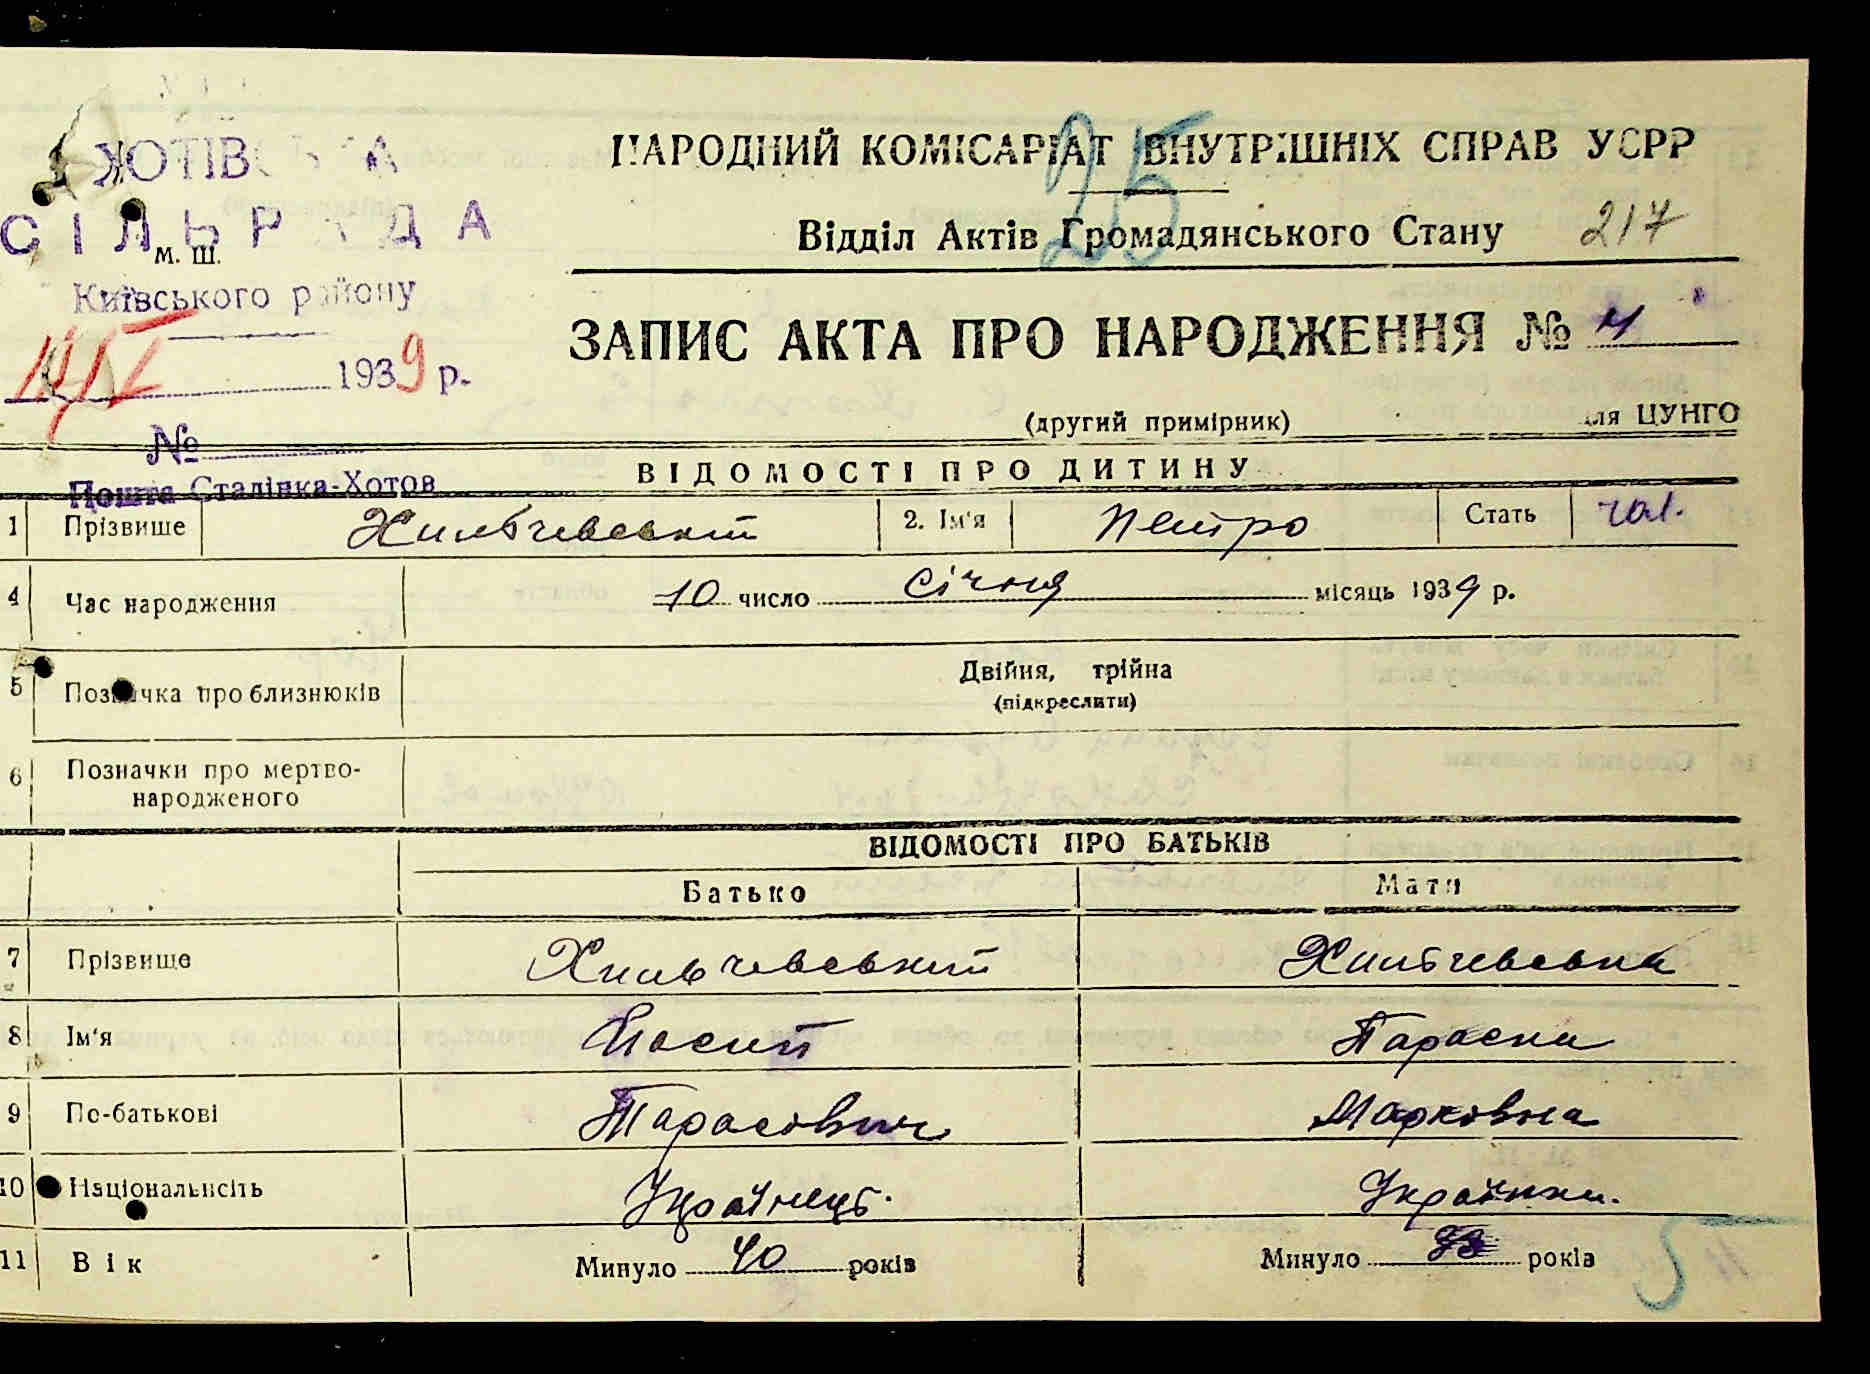 ХОТІВСЬКА
СІЛЬРАДА
м. ш.
Київського району
14/І 1939 р.
№
Пошта Сталінка-Хотов
НАРОДНИЙ КОМІСАРІАТ ВНУТРІШНІХ СПРАВ УСРР
25
Відділ Актів Громадянського Стану 217
ЗАПИС АКТА ПРО НАРОДЖЕННЯ № 4
(другий примірник) для ЦУНГО
ВІДОМОСТІ ПРО ДИТИНУ
1 Прізвище Хильчевський 2. Ім'я Петро Стать чол.
4 Час народження 10 число січня місяць 1939 р.
5 Позначка про близнюків Двійня, трійня
(підкреслити)
6 Позначки про мертво-
народженого
ВІДОМОСТІ ПРО БАТЬКІВ
Батько Мати
7 Прізвище Хильчевський Хильчевська
8 Ім'я Йосип Параска
9 По-батькові Тарасович Марковна
10 Національність Українець. Українка.
11 Вік Минуло 40 років Минуло років
5